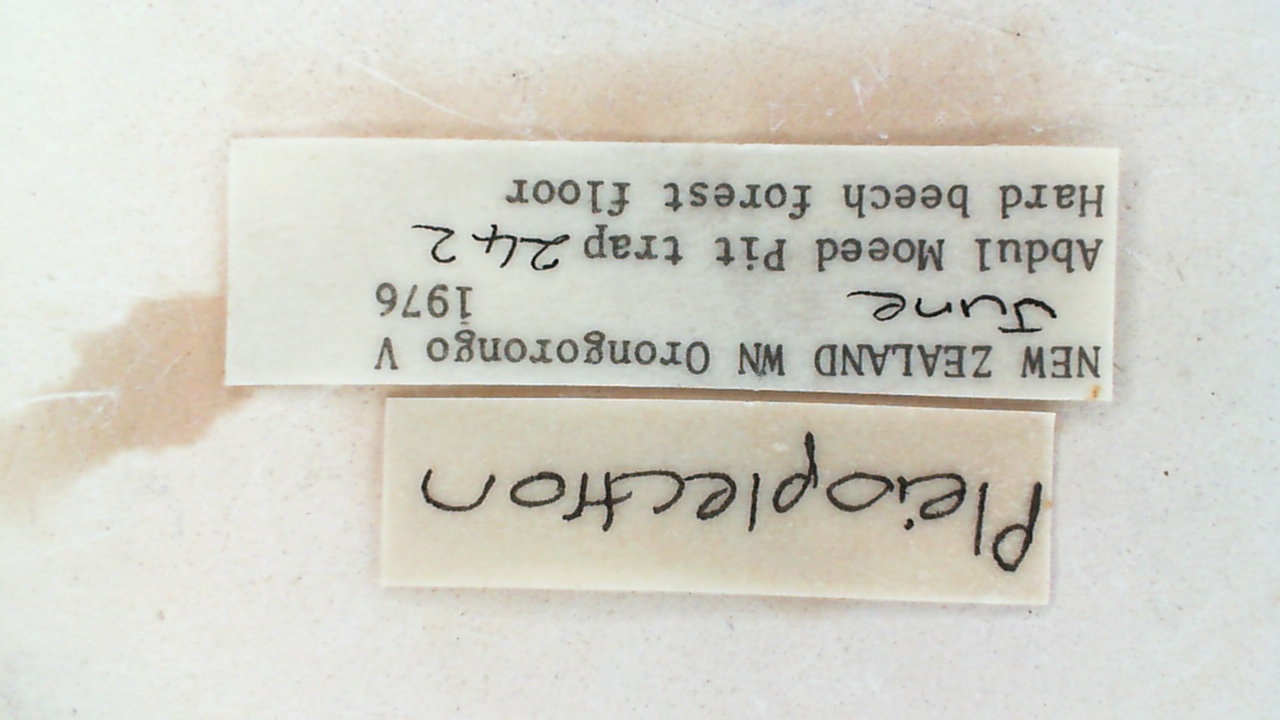 Pleioplectron
NEW ZEALAND WN Orongorongo V
June 1976
Abdul Moeed Pit trap 242
Hard beech forest floor